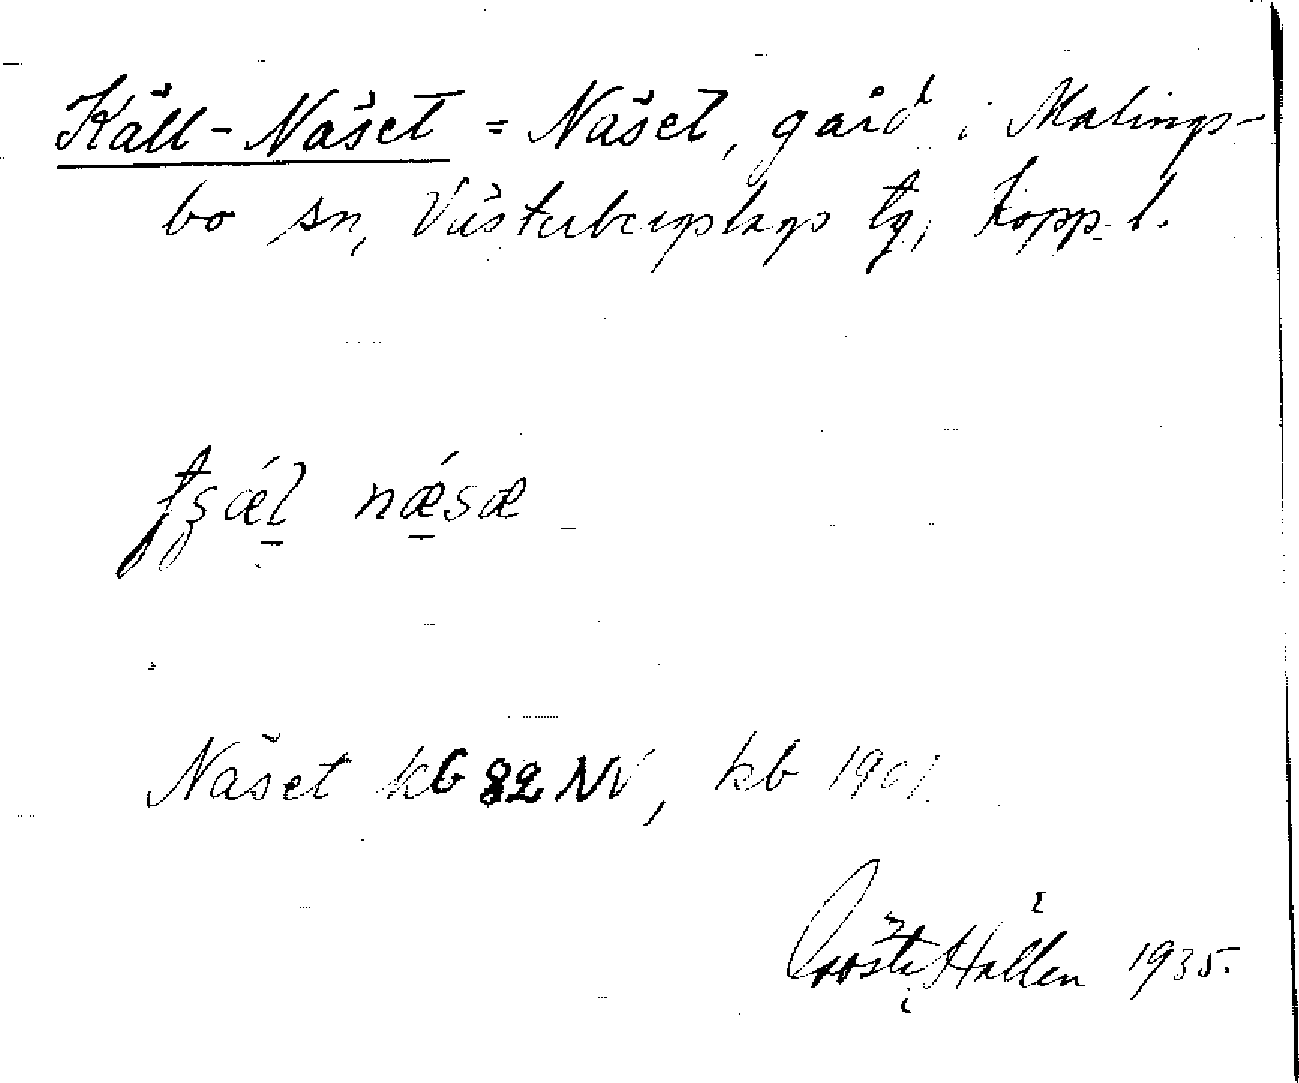 Käll-Näset = Näset, gård i Malings-
bo sn, Västerbergslags tg, Kopp. l.
næsæ
Näset kb 82 NV, kb 1901.
Gösta Hallén 1935.